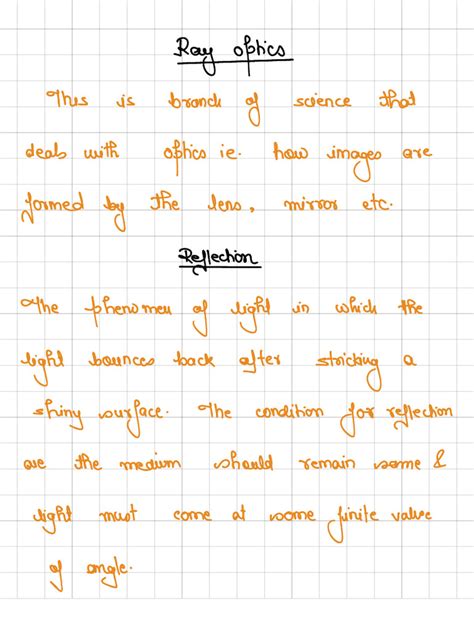 Ray optics
This is branch of science that
deals with optics ie. how images are
formed by the lens, mirror etc.
Reflection
The phenomen of light in which the
light bounces back after stricking a
shiny surface. The condition for reflection
are the medium should remain same &
light must come at some finite value
of angle.